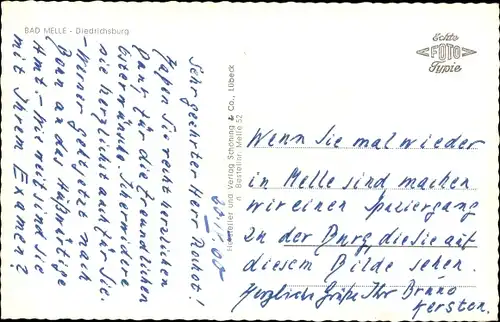 BAD MELLE - Diedrichsburg
Echte
FOTO
Typie
Hersteller und Verlag Schöning & Co., Lübeck
Bestellnr. Melle 52
Sehr geehrter Herr
haben Sie recht herzlichen
Dank für die freundlichen
Osterwünsche.
sie herzlichst auch für Sie.
- Werner geht jetzt nach
Bonn an das
Amt. - Wie weit sind Sie
mit Ihrem Examen?
Wenn Sie mal wieder
in Melle sind machen
wir einen Spaziergang
zu der Burg, die Sie auf
diesem Bilde sehen.
Herzliche Grüße Ihr Bruno
Kerston.